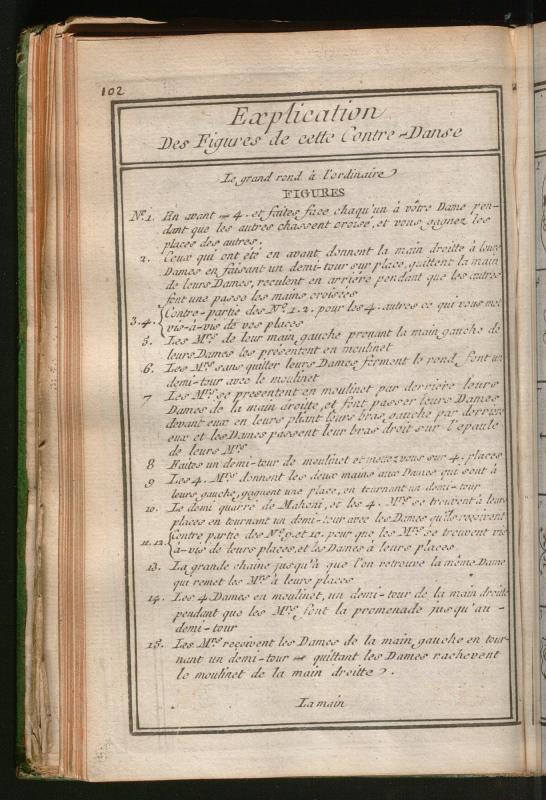 102
Explication
Des Figures de cette Contre-Danse
Le grand rond à l'ordinaire
FIGURES
No. 1. En avant 4. et faites face chaqu'un à vôtre Dame pen-
dant que les autres chassent croisé, et vous gagnez les
places des autres.
2. Ceux qui ont été en avant, donnent la main droitte à leurs
Dames en faisant un demi-tour sur place, quittent la main
de leurs Dames, reculent en arriére pendant que les autres
font une passe les mains croisées
3.4. { Contre-partie des No. 1.2. pour les 4. autres ce qui vous met
vis-à-vis de vos places
5. Les Mrs. de leur main gauche prenant la main gauche de
leurs Dames les présentent en moulinet
6. Les Mrs. sans quitter leurs Dames ferment le rond, font un
demi-tour avec le moulinet
7 Les Mrs. se presentent en moulinet par derriere leurs
Dames de la main droitte, et font passer leurs Dames
devant eux en leurs pliant leurs bras gauche par derriere
eux et les Dames passent leur bras droit sur l'epaule
de leurs Mrs
8 Faites un demi-tour de moulinet et mettez vous sur 4. places
9 Les 4. Mrs. donnent les deux mains aux Dames qui sont à
leurs gauche, gagnent une place, en tournant un demi-tour
10. Le demi quarré de Mahoni, et les 4. Mrs. se trouvent à leurs
places en tournant un demi-tour avec les Dames qu'ils reçoivent
11.12. { Contre partie des No. 9. et 10. pour que les Mrs. se trouvent vis
à-vis de leurs places, et les Dames à leurs places
13. La grande chaine jusqu'à que l'on retrouve la même Dame
qui remet les Mrs. à leurs places
14. Les 4 Dames en moulinet, un demi-tour de la main droitte
pendant que les Mrs. font la promenade jusqu'au
demi-tour
15. Les Mrs. reçoivent les Dames de la main gauche en tour-
nant un demi-tour et quittant les Dames rachevent
le moulinet de la main droitte.
La main